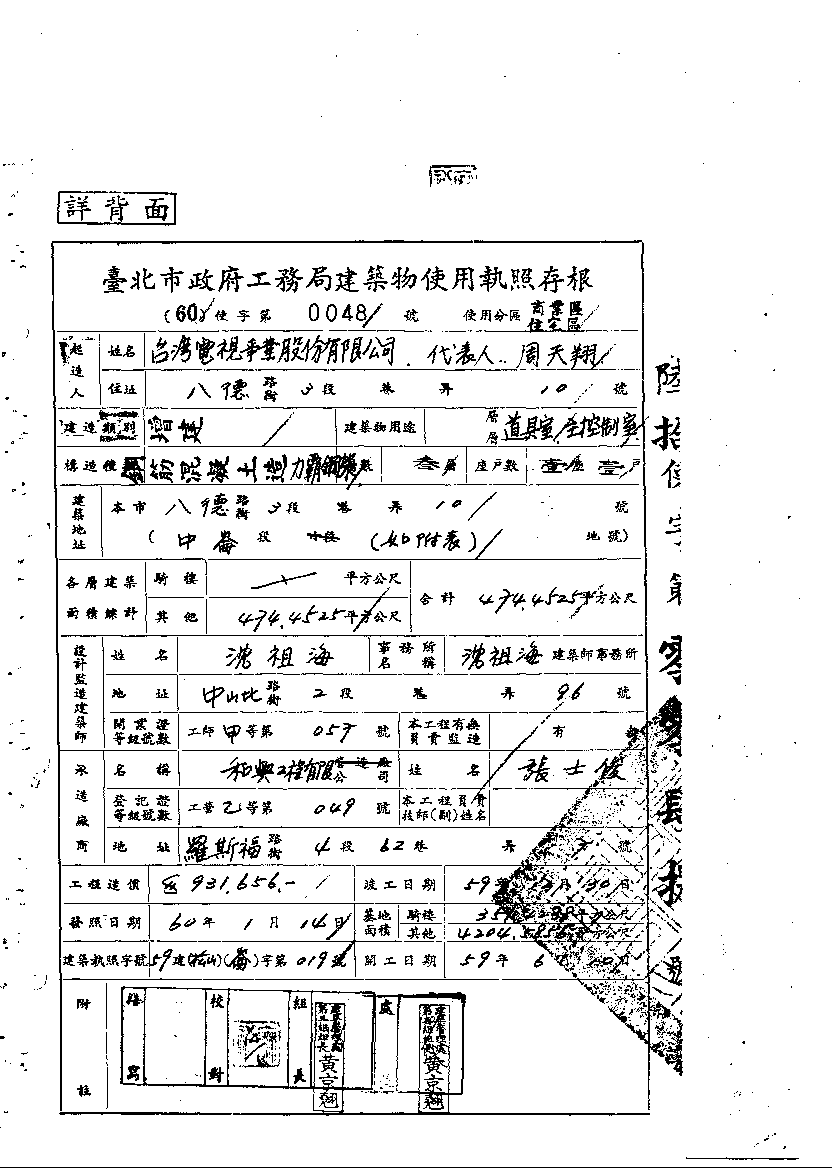 詳背面
臺北市政府工務局建築物使用執照存根
(60)使字第 0048 號 使用分區 商業區 住宅區
起造人 姓名 台湾電視事業股份有限公司 . 代表人.. 周天翔
住址 八德 路街 3段 巷 弄 10 號
建造類別 增建 建築物用途 層層 道具室/主控制室
構造種 鋼筋混凝土造力霸鋼架 數 叁層 座戶數 壹座 壹戶
建築地址 本市 八德 路街 3段 巷 弄 10 號
( 中崙 段 小段 (如附表) 地號)
各層建築面積總計 騎樓 平方公尺 合計 474.4525平方公尺
其他 474.4525平方公尺
設計監造建築師 姓名 沈祖海 事務所名稱 沈祖海 建築師事務所
地址 中山北 路街 2段 巷 弄 96 號
開業證等級號數 工師 甲等第 057 號 本工程有無負責監造 有
承造廠商 名稱 和興工程有限 營造廠公司 姓名 張士俊
登記證等級號數 工營 乙等第 049 號 本工程負責技師(副)姓名
地址 羅斯福 路街 4段 62巷 弄 號
工程造價 931,656.- 竣工日期 59年 月 30日
發照日期 60年 1月 14日 基地面積 騎樓 平方公尺
其他 平方公尺
建築執照字號 59建(松山)(崙)字第019號 開工日期 59年 6月 10日
附註 繕寫 校對 組長 黃京翹 處 黃京翹
陸拾使字第零零肆捌號